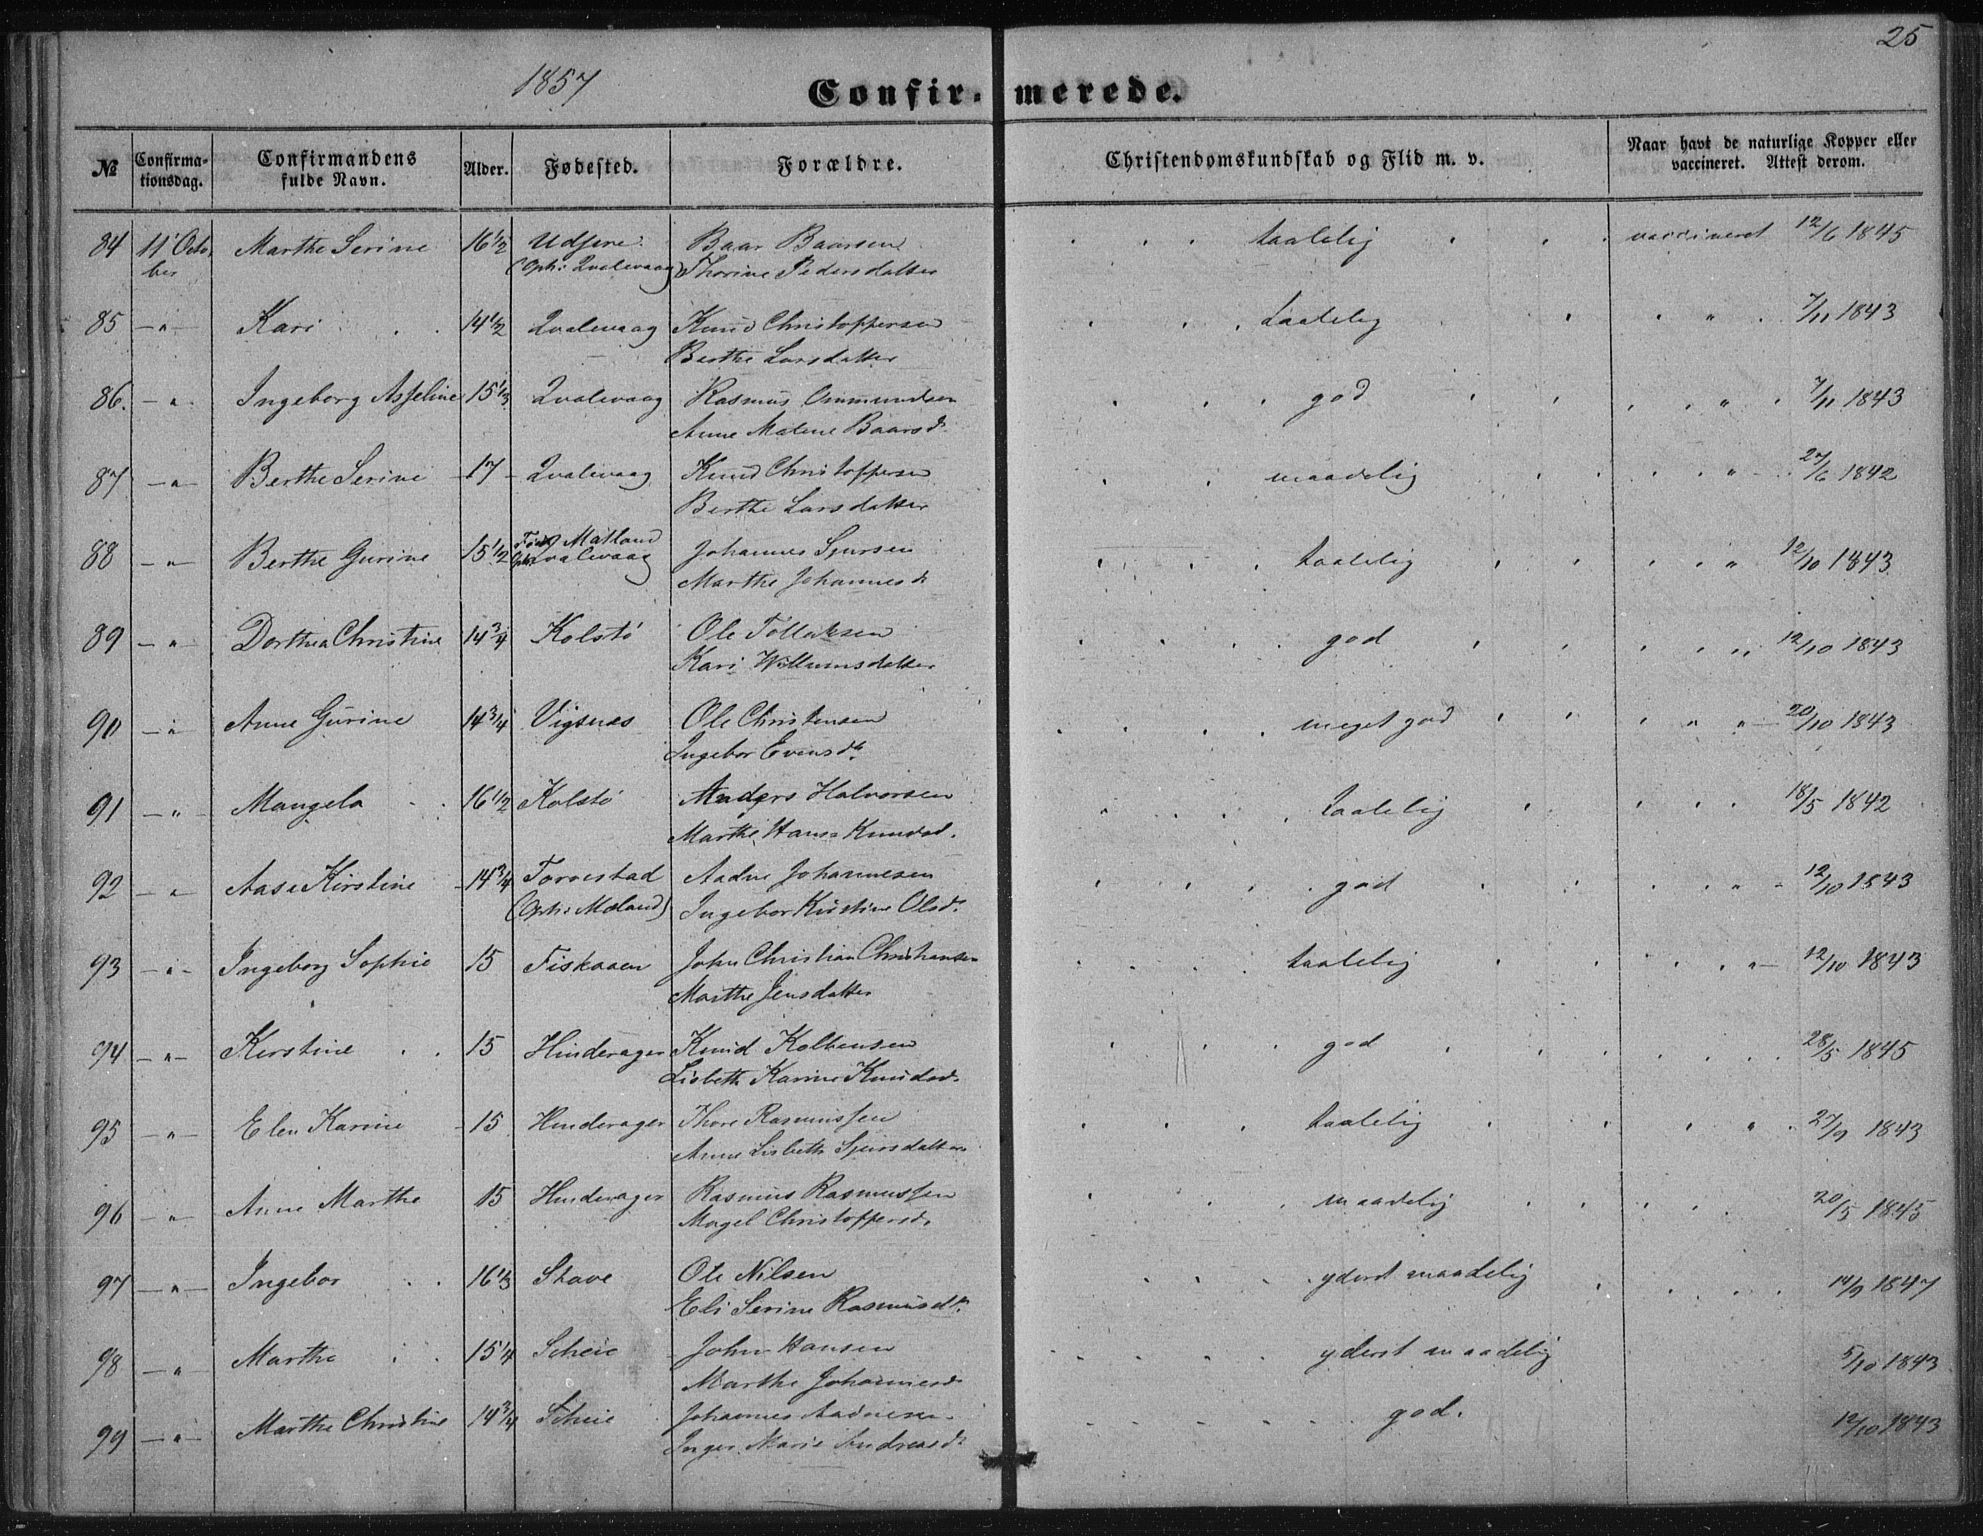 25
1857
Confir- merede.
№ Confirma-tionsdag. Confirmandens fulde Navn. Alder. Fødested. Forældre. Christendomskundskab og Flid m. v. Naar havt de naturlige Kopper eller vaccineret. Attest derom.
84 11' Octo- Marthe Serine 16 1/2 Udfjere Baar Baarsen taalelig vaccineret 12/6 1845
ber (Oph: Qvalevaag) Thorine Pedersdatter
85 - " - Kari 14 1/2 Qvalevaag Knud Christoppersen taalelig " 7/11 1843
Berthe Larsdatter
86. - " Ingeborg Asseline 15 1/3 Qvalevaag Rasmus Ommundsen god " 7/11 1843
Anne Malene Baarsd.
87 - " - Berthe Serine 17 - Qvalevaag Knud Christoffersen maadelig " 27/6 1842
Berthe Larsdatter
88 - " Berthe Gurine 15 1/2 Matland Johannes Sjursen taalelig " 12/10 1843
Qvalevaag Marthe Johannesd
89 - " Dorthea Christine 14 3/4 Kolstø Ole Tollaksen god " 12/10 1843
Kari Willumsdatter
90 - " Anne Gurine 14 3/4 Vigsnes Ole Christensen meget god " " 20/10 1843
Ingebor Evensd.
91 - " Mangela 16 1/2 Kolstø Anders Halvorsen taalelig 18/5 1842
Marthe Hansa Knudsd.
92 - " Aasa Kirstine 14 3/4 Torvestad Aadne Johannesen god " 12/10 1843
(Oph: Mæland) Ingebor Kirstine Olsd.
93 - " - Ingeborg Sophie 15 Fiskaaen John Christian Christiansen taalelig " 12/10 1843
Marthe Jensdatter
94 - " - Kirstine 15 Hinderager Knud Kolbensen god 28/5 1845
Lisbeth Karine Knudsd.
95 - " Elen Karine 15 Hinderager Thore Rasmussen taalelig " 27/9 1843
Anne Lisbeth Sjursdatter
96 - " Anne Marthe 15 Hinderager Rasmus Rasmussen maadelig 20/5 1845
Magel Christoffersd.
97 - " - Ingebor 16 1/3 Stave Ole Nilsen yderst maadelig 14/9 1847
Eli Serine Rasmusd.
98 - " Marthe 15 1/4 Scheie John Hansen yderst maadelig 5/10 1843
Marthe Johannesd
99 - " - Marthe Christine 14 3/4 Scheie Johannes Aadnesen god. 12/10 1843
Inger Marie Andreasd.